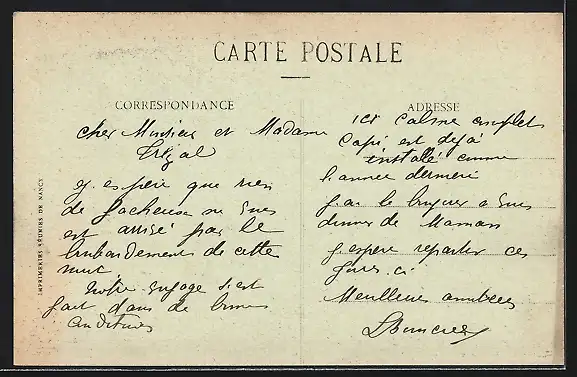 CARTE POSTALE
CORRESPONDANCE
cher Monsieur et Madame
J'espère que rien
de facheux ne vous
est arrivé par le
bombardement de cette
nuit
Notre voyage s'est
fait dans de bonnes
conditions
ADRESSE
ici calme complet
est déjà
installé comme
l'année dernière
J'ai le a vous
donner de Maman
J'espère repartir ces
jours ci
Meilleures amitiées
IMPRIMERIES RÉUNIES DE NANCY